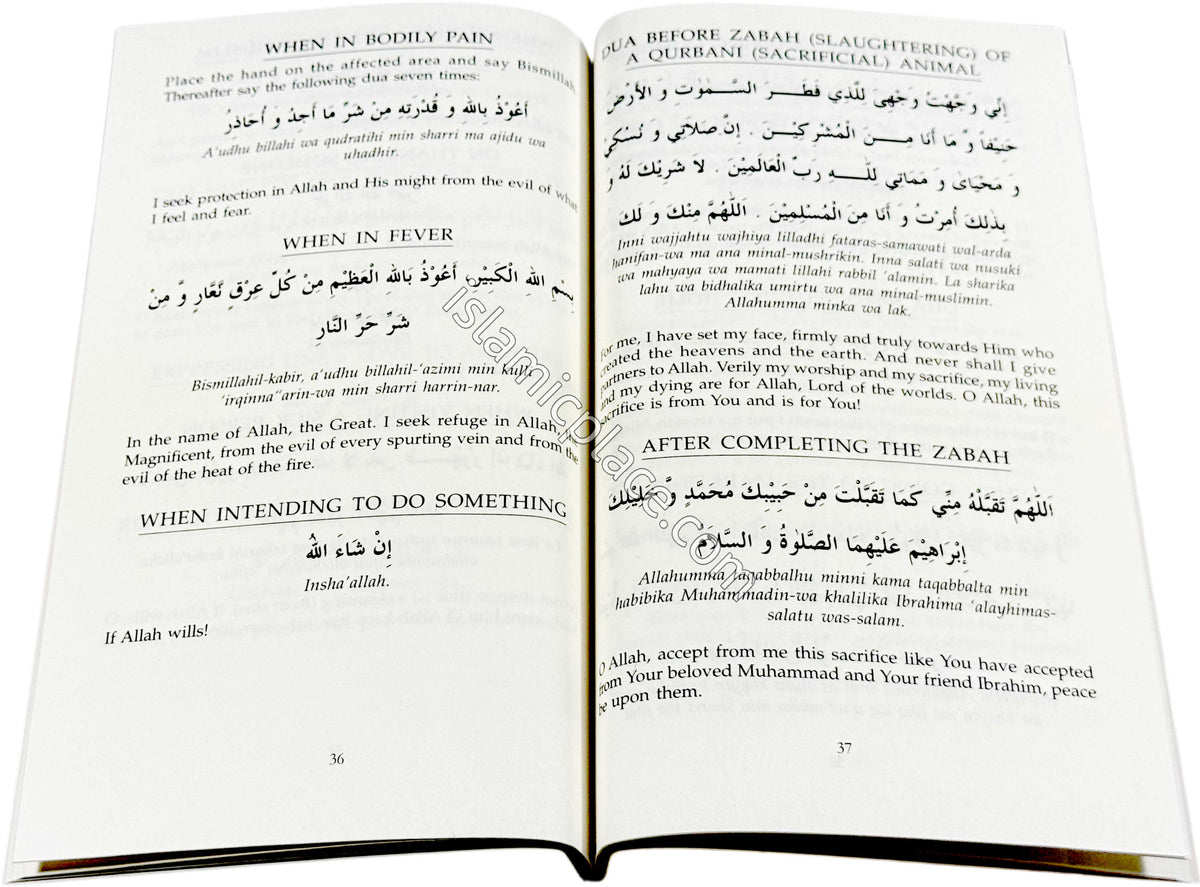 WHEN IN BODILY PAIN
Place the hand on the affected area and say Bismillah.
Thereafter say the following dua seven times:
أَعُوْذُ بِاللهِ وَ قُدْرَتِهِ مِنْ شَرِّ مَا أَجِدُ وَ أُحَاذِرُ
A'udhu billahi wa qudratihi min sharri ma ajidu wa
uhadhir.
I seek protection in Allah and His might from the evil of what
I feel and fear.
WHEN IN FEVER
بِسْمِ اللهِ الْكَبِيْرِ أَعُوْذُ بِاللهِ الْعَظِيْمِ مِنْ كُلِّ عِرْقٍ نَّعَّارٍ وَّ مِنْ
شَرِّ حَرِّ النَّارِ
Bismillahil-kabir, a'udhu billahil-'azimi min kulli
'irqinna"arin-wa min sharri harrin-nar.
In the name of Allah, the Great. I seek refuge in Allah, the
Magnificent, from the evil of every spurting vein and from the
evil of the heat of the fire.
WHEN INTENDING TO DO SOMETHING
إِنْ شَاءَ اللهُ
Insha'allah.
If Allah wills!
36
DUA BEFORE ZABAH (SLAUGHTERING) OF
A QURBANI (SACRIFICIAL) ANIMAL
إِنِّي وَجَّهْتُ وَجْهِيَ لِلَّذِي فَطَرَ السَّمٰوٰتِ وَ الأَرْضَ
حَنِيْفاً وَّ مَا أَنَا مِنَ الْمُشْرِكِيْنَ . إِنَّ صَلاَتِي وَ نُسُكِي
وَ مَحْيَايَ وَ مَمَاتِي لِلّٰهِ رَبِّ الْعَالَمِيْنَ . لاَ شَرِيْكَ لَهُ وَ
بِذٰلِكَ أُمِرْتُ وَ أَنَا مِنَ الْمُسْلِمِيْنَ . اَللّٰهُمَّ مِنْكَ وَ لَكَ
Inni wajjahtu wajhiya lilladhi fataras-samawati wal-arda
hanifan-wa ma ana minal-mushrikin. Inna salati wa nusuki
wa mahyaya wa mamati lillahi rabbil 'alamin. La sharika
lahu wa bidhalika umirtu wa ana minal-muslimin.
Allahumma minka wa lak.
For me, I have set my face, firmly and truly towards Him who
created the heavens and the earth. And never shall I give
partners to Allah. Verily my worship and my sacrifice, my living
and my dying are for Allah, Lord of the worlds. O Allah, this
sacrifice is from You and is for You!
AFTER COMPLETING THE ZABAH
اَللّٰهُمَّ تَقَبَّلْهُ مِنِّي كَمَا تَقَبَّلْتَ مِنْ حَبِيْبِكَ مُحَمَّدٍ وَّ خَلِيْلِكَ
إِبْرَاهِيْمَ عَلَيْهِمَا الصَّلوٰةُ وَ السَّلاَمُ
Allahumma taqabbalhu minni kama taqabbalta min
habibika Muhammadin-wa khalilika Ibrahima 'alayhimas-
salatu was-salam.
O Allah, accept from me this sacrifice like You have accepted
from Your beloved Muhammad and Your friend Ibrahim, peace
be upon them.
37
Islamicplace.com